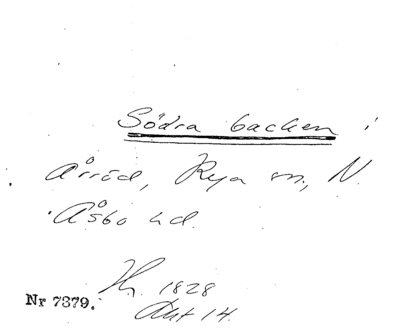 Södra backen i
Årröd, Rya sn, N.
Åsbo hd.
Hg. 1828
Akt 14.
Nr 7379.